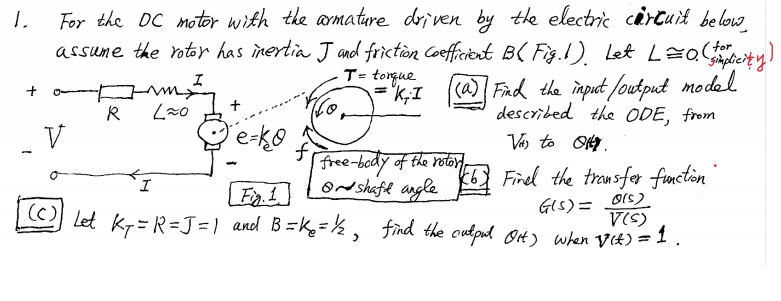 1. For the DC motor with the armature driven by the electric circuit below,
assume the rotor has inertia J and friction coefficient B (Fig.1). Let L≅0. (for simplicity)
+ I T = torque = KᵢI
R L≈0 + e=kₑθ̇ θ
V
- - f
I
free-body of the rotor
θ ~ shaft angle
Fig.1
(a) Find the input/output model
described the ODE, from
V(t) to θ(t).
(b) Find the transfer function
G(s) = θ(s)/V(s)
(c) Let K_T = R = J = 1 and B = Kₑ = ½, find the output θ(t) when V(t) = 1.